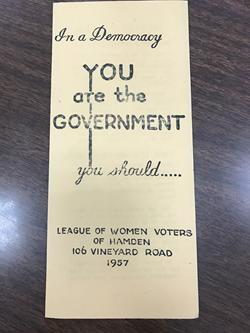 In a Democracy
YOU
are the
GOVERNMENT
you should.....
LEAGUE OF WOMEN VOTERS
OF HAMDEN
106 VINEYARD ROAD
1957